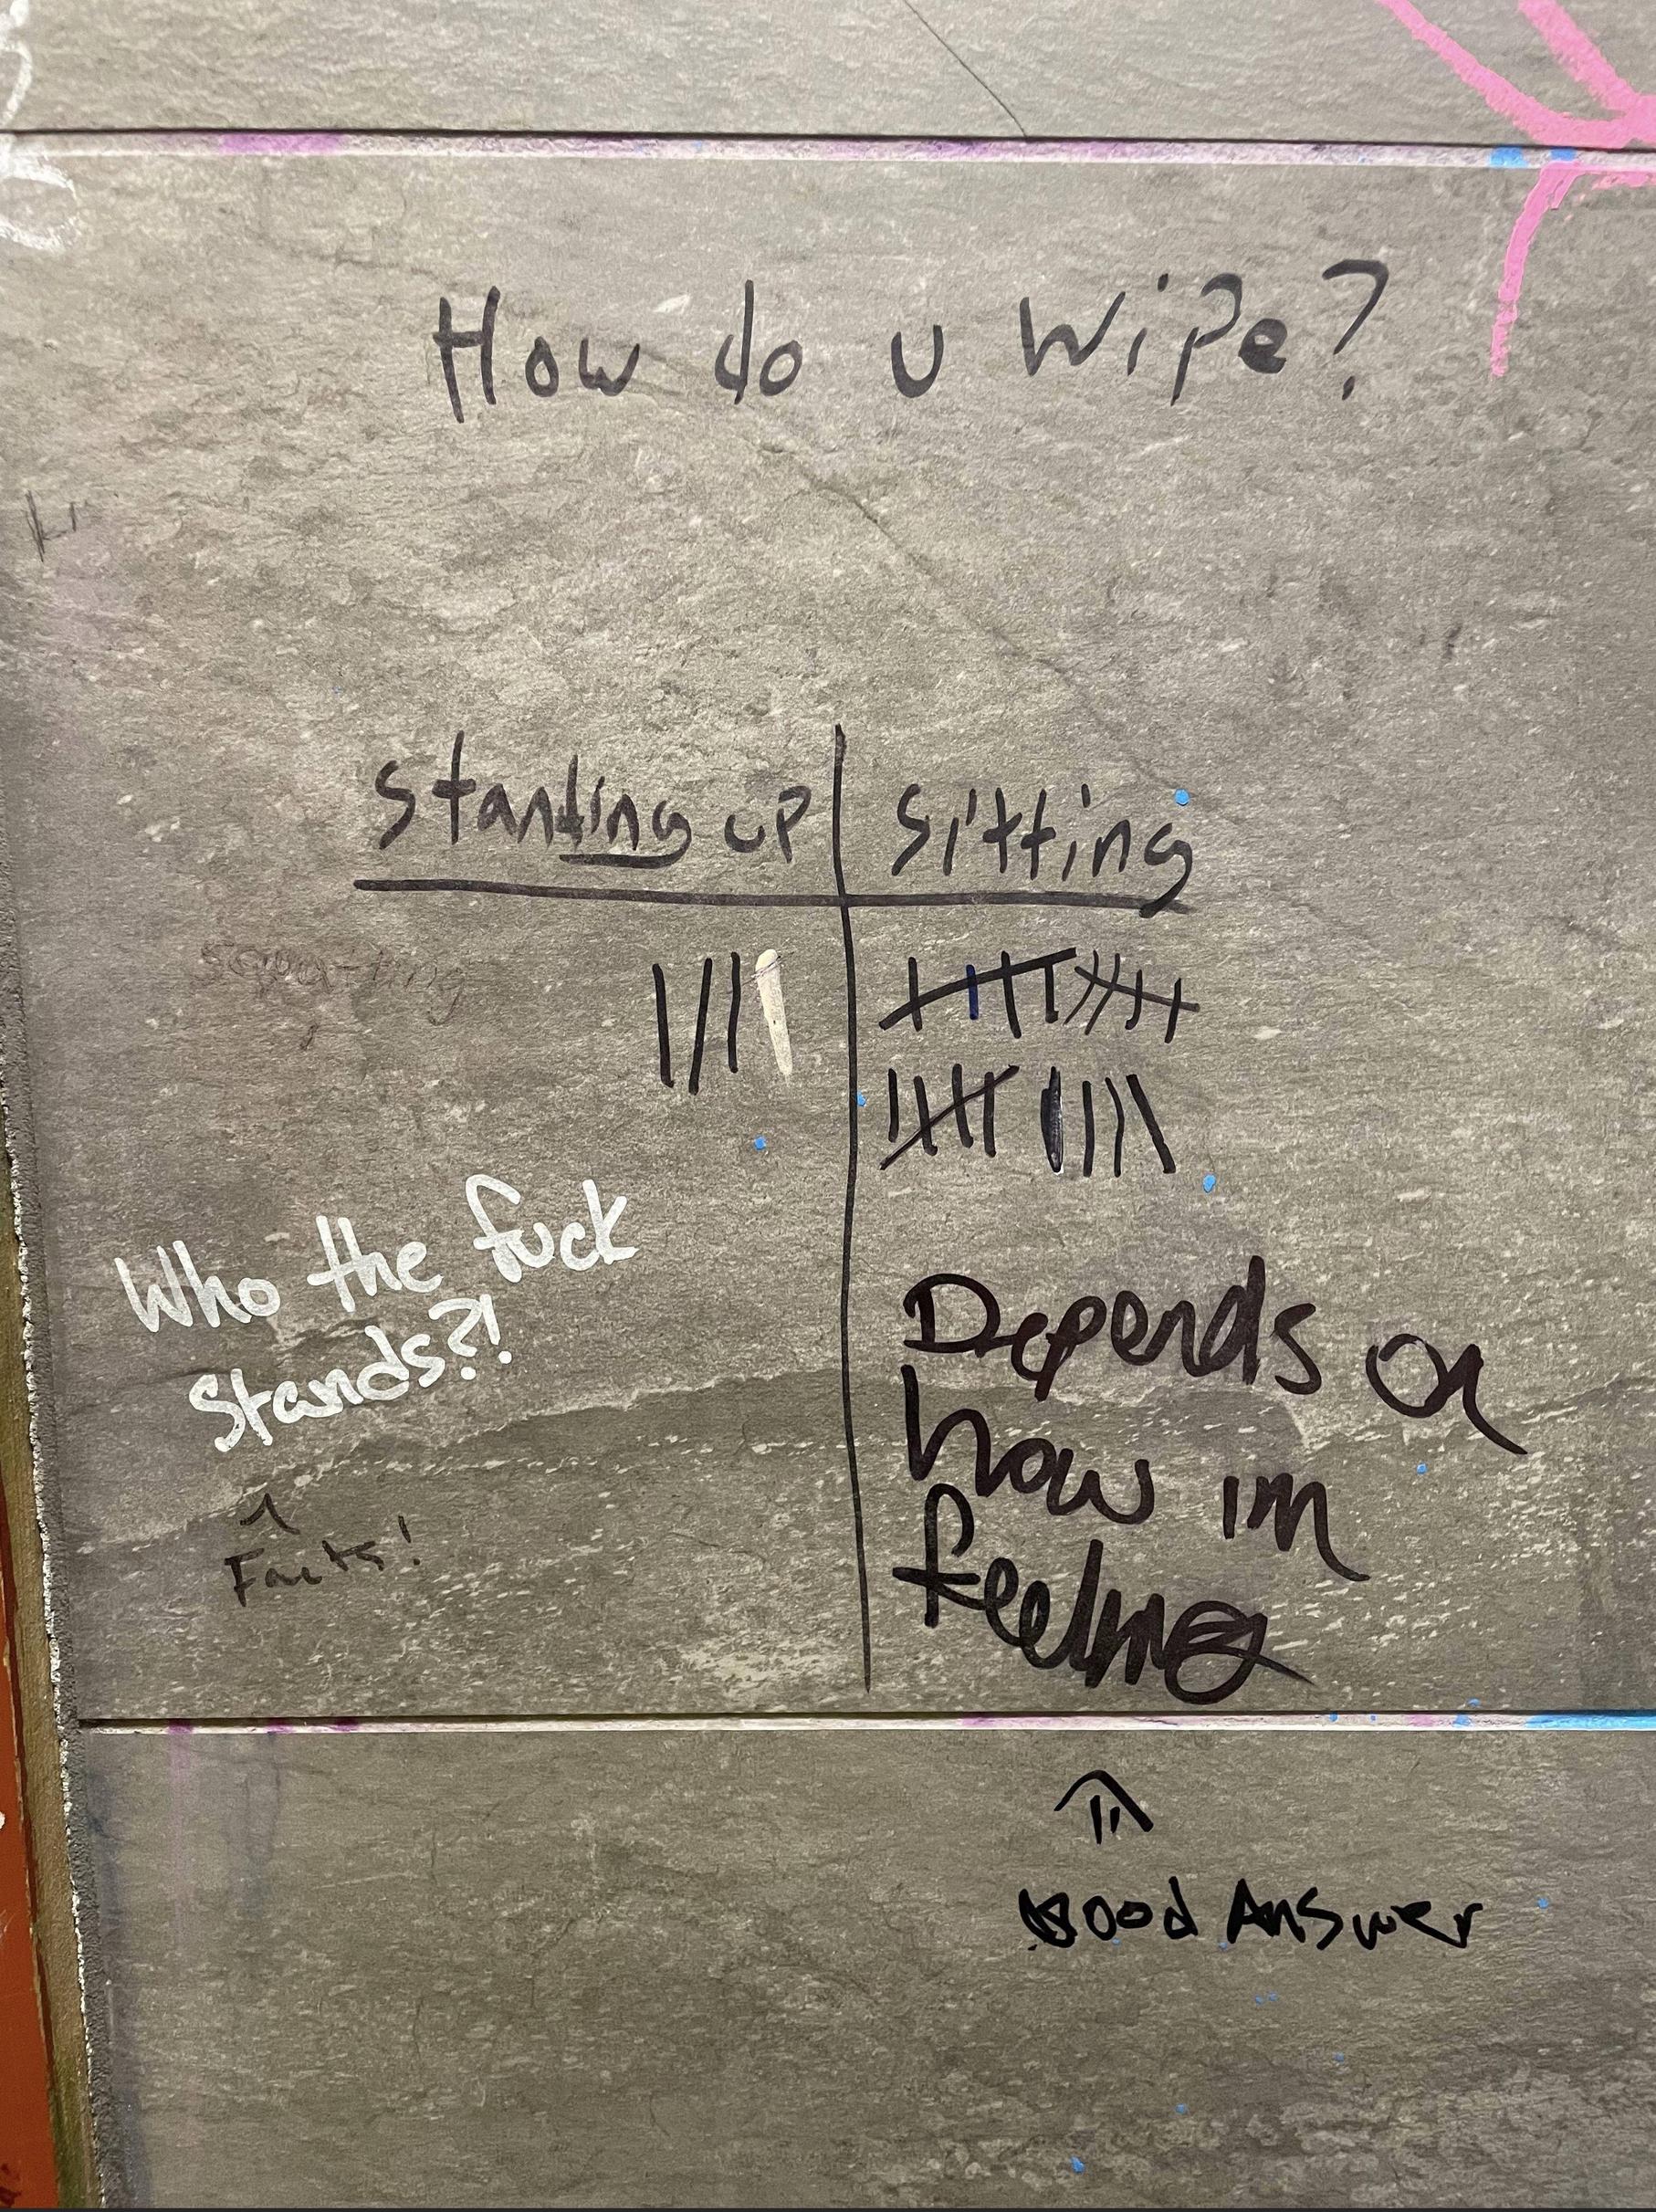 How do u Wipe?
Standing up
Sitting
squatting
Who the fuck
Stands?!
Facts!
Depends on
how im
feeling
Good Answer